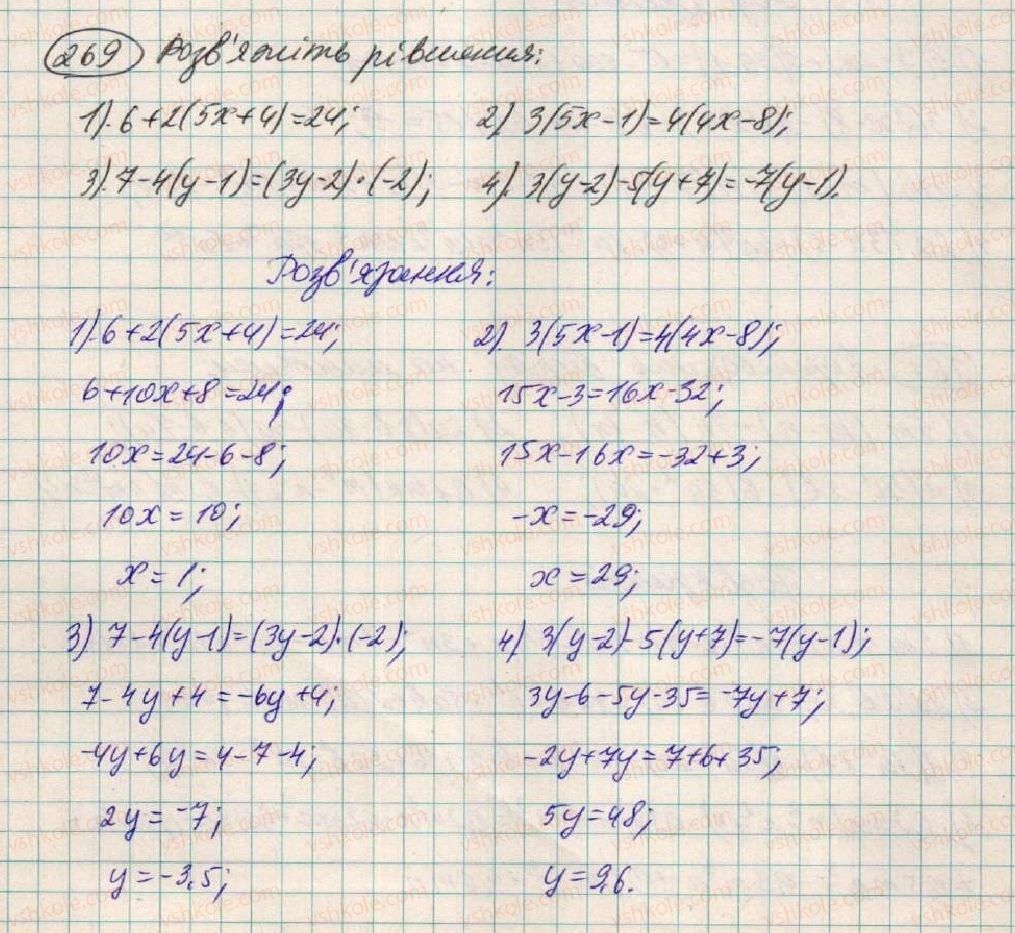 269 Розв'яжіть рівняння:
1). 6+2(5x+4)=24; 2) 3(5x-1)=4(4x-8);
3). 7-4(y-1)=(3y-2)·(-2); 4). 3(y-2)-5(y+7)=-7(y-1).
Розв'язання:
1). 6+2(5x+4)=24; 2). 3(5x-1)=4(4x-8);
6+10x+8=24; 15x-3=16x-32;
10x=24-6-8; 15x-16x=-32+3;
10x=10; -x=-29;
x=1; x=29;
3) 7-4(y-1)=(3y-2)·(-2); 4) 3(y-2)-5(y+7)=-7(y-1);
7-4y+4=-6y+4; 3y-6-5y-35=-7y+7;
-4y+6y=4-7-4; -2y+7y=7+6+35;
2y=-7; 5y=48;
y=-3,5; y=9,6.